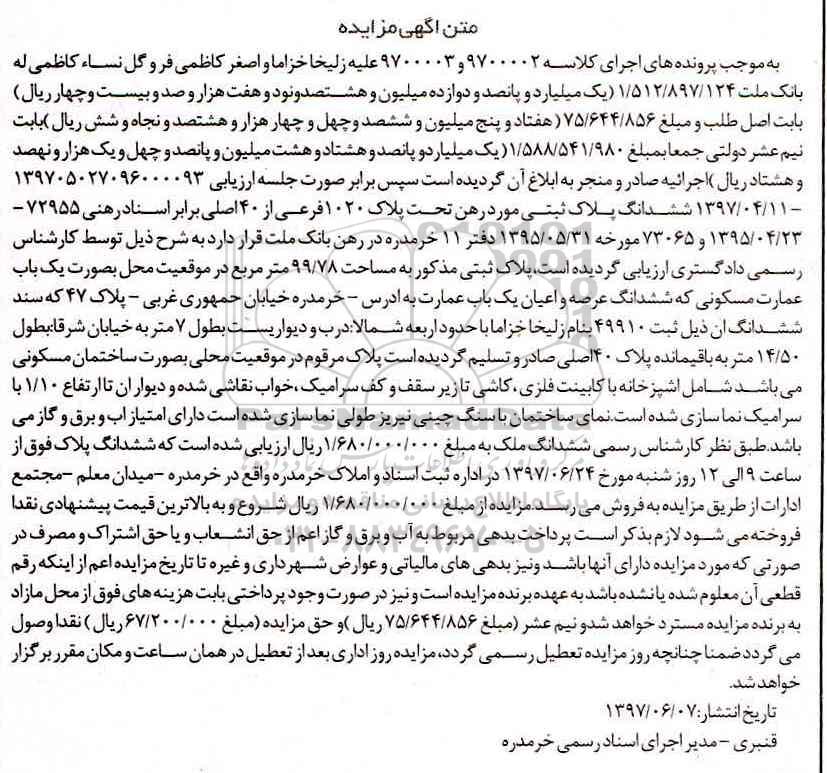 متن آگهی مزایده
به موجب پرونده های اجرای کلاسه ۹۷۰۰۰۰۲ و ۹۷۰۰۰۰۳ علیه زلیخا خزاما و اصغر کاظمی فر و گل نساء کاظمی له
بانک ملت ۱/۵۱۲/۸۹۷/۱۲۴ (یک میلیارد و پانصد و دوازده میلیون و هشتصدو نود و هفت هزار و صد و بیست و چهار ریال)
بابت اصل طلب و مبلغ ۷۵/۶۴۴/۸۵۶ ( هفتاد و پنج میلیون و ششصد و چهل و چهار هزار و هشتصد و نجاه و شش ریال )بابت
نیم عشر دولتی جمعا بمبلغ ۱/۵۸۸/۵۴۱/۹۸۰( یک میلیاردو پانصد و هشتاد و هشت میلیون و پانصد و چهل و یک هزار و نهصد
و هشتاد ریال )اجرائیه صادر و منجر به ابلاغ آن گردیده است سپس برابر صورت جلسه ارزیابی ۱۳۹۷۰۵۰۲۷۰۹۶۰۰۰۰۹۳
- ۱۳۹۷/۰۴/۱۱ ششدانگ پلاک ثبتی مورد رهن تحت پلاک ۱۰۲۰فرعی از ۴۰اصلی برابر اسناد رهنی ۷۲۹۵۵ -
۱۳۹۵/۰۴/۲۳ و ۷۳۰۶۵ مورخه ۱۳۹۵/۰۵/۳۱ دفتر ۱۱ خرمدره در رهن بانک ملت قرار دارد به شرح ذیل توسط کارشناس
رسمی دادگستری ارزیابی گردیده است، پلاک ثبتی مذکور به مساحت ۹۹/۷۸ متر مربع در موقعیت محل بصورت یک باب
عمارت مسکونی که ششدانگ عرصه و اعیان یک باب عمارت به ادرس - خرمدره خیابان جمهوری غربی - پلاک ۴۷ که سند
ششدانگ ان ذیل ثبت ۴۹۹۱۰ بنام زلیخا خزاما با حدود اربعه شمالا:درب و دیواریست بطول ۷ متر به خیابان شرقا:بطول
۱۴/۵۰ متر به باقیمانده پلاک ۴۰اصلی صادر و تسلیم گردیده است پلاک مرقوم در موقعیت محلی بصورت ساختمان مسکونی
می باشد شامل اشپزخانه با کابینت فلزی ، کاشی تا زیر سقف و کف سرامیک ، خواب نقاشی شده و دیواران تا ارتفاع ۱/۱۰ با
سرامیک نما سازی شده است.نمای ساختمان با سنگ چینی نیریز طولی نما سازی شده است دارای امتیاز اب و برق و گاز می
باشد.طبق نظر کارشناس رسمی ششدانگ ملک به مبلغ ۱/۶۸۰/۰۰۰/۰۰۰ریال ارزیابی شده است که ششدانگ پلاک فوق از
ساعت ۹ الی ۱۲ روز شنبه مورخ ۱۳۹۷/۰۶/۲۴ در اداره ثبت اسناد و املاک خرمدره واقع در خرمدره -میدان معلم -مجتمع
ادارات از طریق مزایده به فروش می رسد. مزایده از مبلغ ۱/۶۸۰/۰۰۰/۰۰۰ ریال شروع و به بالاترین قیمت پیشنهادی نقدا
فروخته می شود لازم بذکر است پرداخت بدهی مربوط به آب و برق و گاز اعم از حق انشعاب و یا حق اشتراک و مصرف در
صورتی که مورد مزایده دارای آنها باشد ونیز بدهی های مالیاتی و عوارض شهرداری و غیره تا تاریخ مزایده اعم از اینکه رقم
قطعی آن معلوم شده یا نشده باشد به عهده برنده مزایده است و نیز در صورت وجود پرداختی بابت هزینه های فوق از محل مازاد
به برنده مزایده مسترد خواهد شد و نیم عشر (مبلغ ۷۵/۶۴۴/۸۵۶ ریال )و حق مزایده (مبلغ ۶۷/۲۰۰/۰۰۰ ریال ) نقدا وصول
می گردد ضمنا چنانچه روز مزایده تعطیل رسمی گردد، مزایده روز اداری بعد از تعطیل در همان ساعت و مکان مقرر برگزار
خواهد شد.
تاریخ انتشار: ۱۳۹۷/۰۶/۰۷
قنبری - مدیر اجرای اسناد رسمی خرمدره